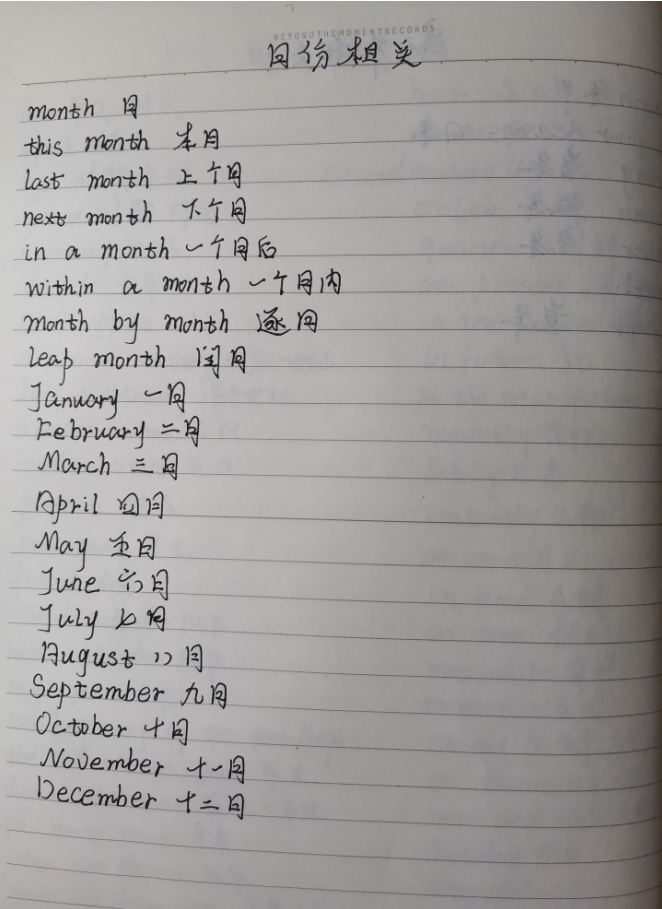 BEYONDTHEMOMENTRECORDS
月份相关
month 月
this month 本月
last month 上个月
next month 下个月
in a month 一个月后
within a month 一个月内
month by month 逐月
leap month 闰月
January 一月
February 二月
March 三月
April 四月
May 五月
June 六月
July 七月
August 八月
September 九月
October 十月
November 十一月
December 十二月